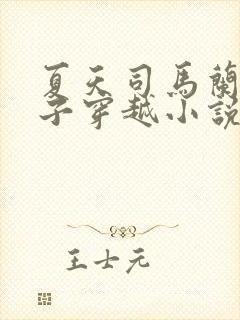 夏天司馬蘭
子穿越小說
王士元